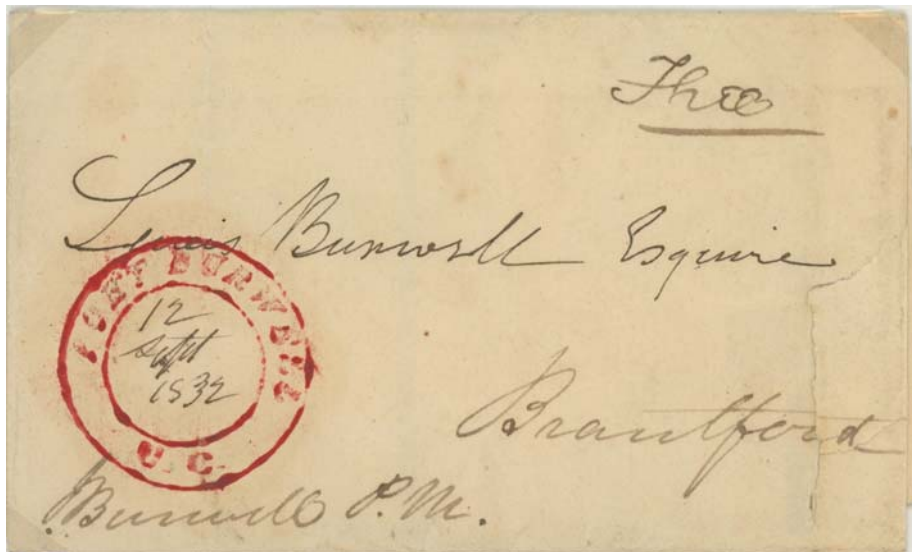 Free
Lewis Burwell Esquire
PORT BURWELL
12
Sept
1832
U.C.
Brantford
Burwell P.M.